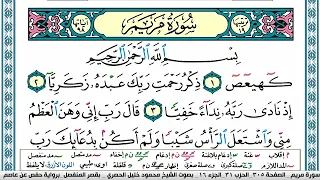 سُورَةُ مَرْيَمَ
بِسْمِ ٱللَّهِ ٱلرَّحْمَٰنِ ٱلرَّحِيمِ
كٓهيعٓصٓ ١ ذِكْرُ رَحْمَتِ رَبِّكَ عَبْدَهُۥ زَكَرِيَّآ ٢
إِذْ نَادَىٰ رَبَّهُۥ نِدَآءً خَفِيًّا ٣ قَالَ رَبِّ إِنِّي وَهَنَ ٱلْعَظْمُ
مِنِّي وَٱشْتَعَلَ ٱلرَّأْسُ شَيْبًا وَلَمْ أَكُنۢ بِدُعَآئِكَ رَبِّ
سورة مريم الصفحة ٣٠٥ الحزب ٣١ الجزء ١٦ بصوت الشيخ محمود خليل الحصري بقصر المنفصل برواية حفص عن عاصم